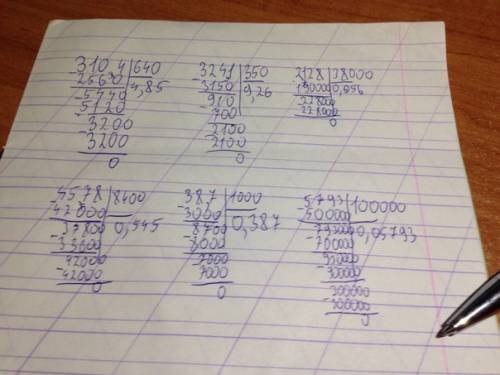 3104 | 640
-2560 | 4,85
-5440
5120
-3200
3200
0
-3241 | 350
3150 | 9,26
-910
700
-2100
2100
0
2128 | 38000
190000 | 0,056
-228000
228000
0
-4578 | 8400
42000 | 0,545
-37800
33600
-42000
42000
0
-387 | 1000
3000 | 0,387
-8700
8000
-7000
7000
0
-5793 | 100000
500000 | 0,05793
-793000
700000
-930000
900000
-300000
300000
0